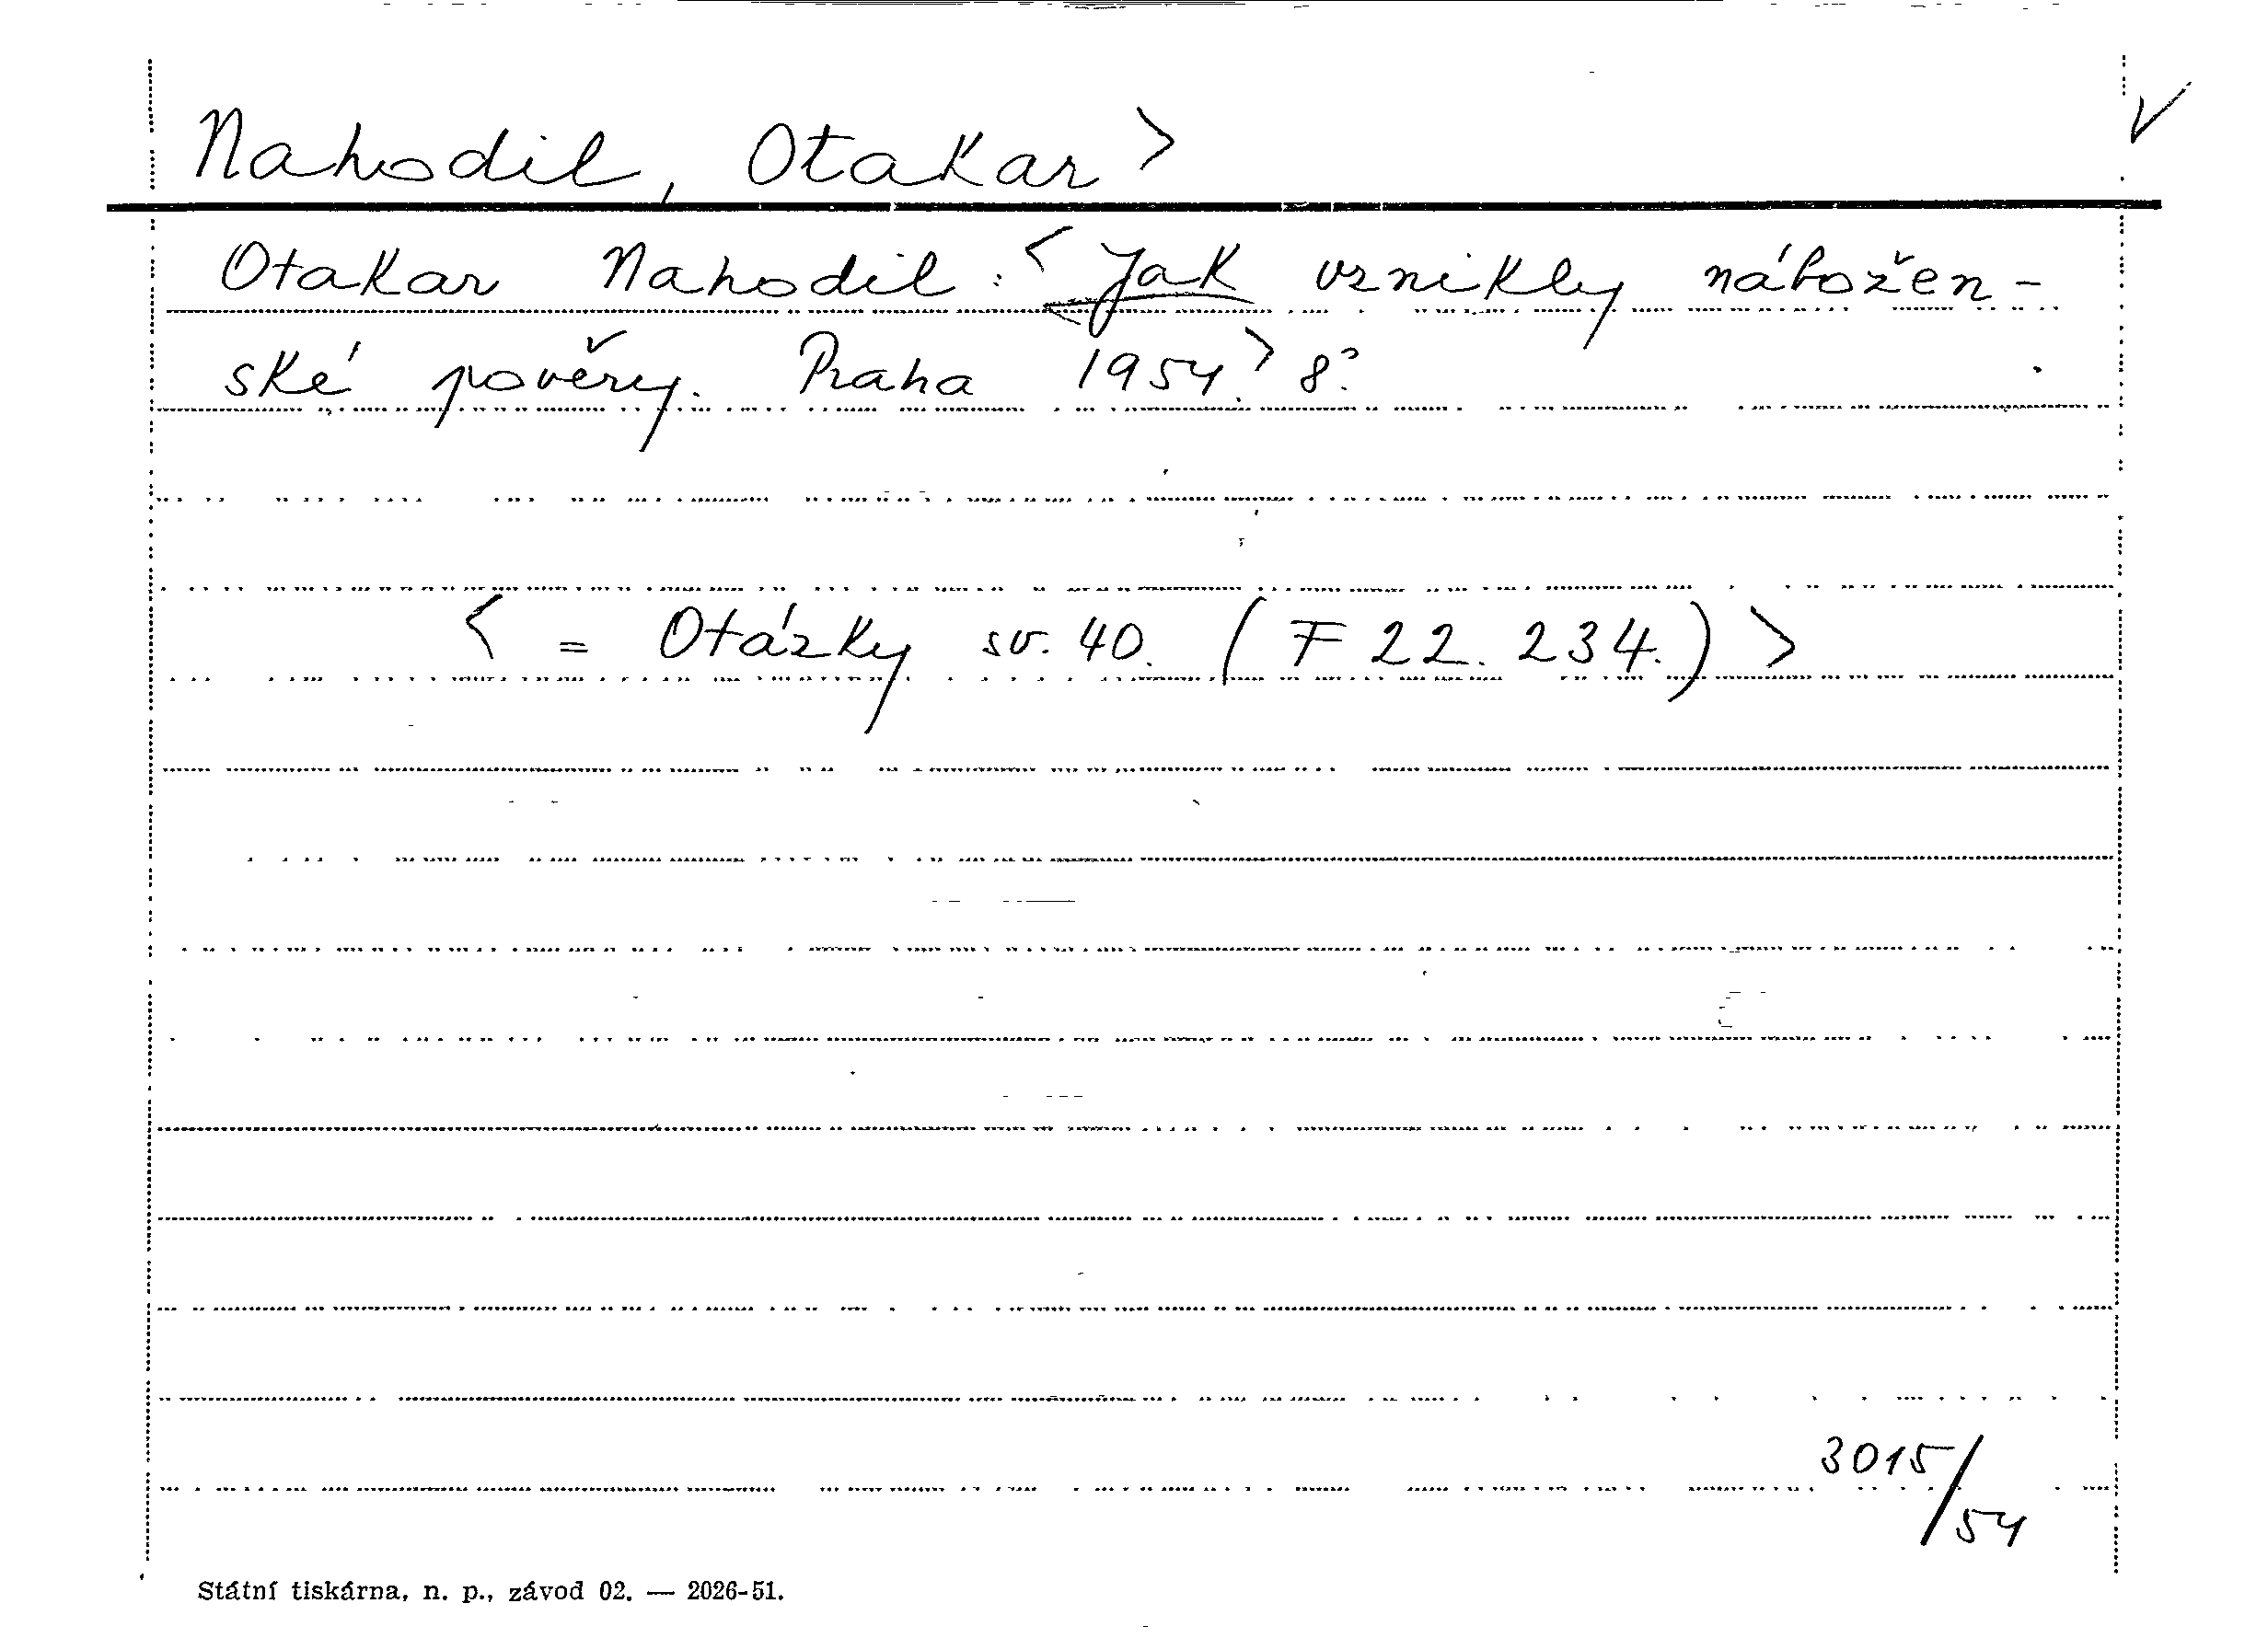 Nahodil, Otakar > V
Otakar Nahodil: < Jak vznikly nábožen-
ské pověry. Praha 1954. > 8°.
< = Otázky sv. 40. (F 22. 234.) >
3015/54
Státní tiskárna, n. p., závod 02. — 2026-51.